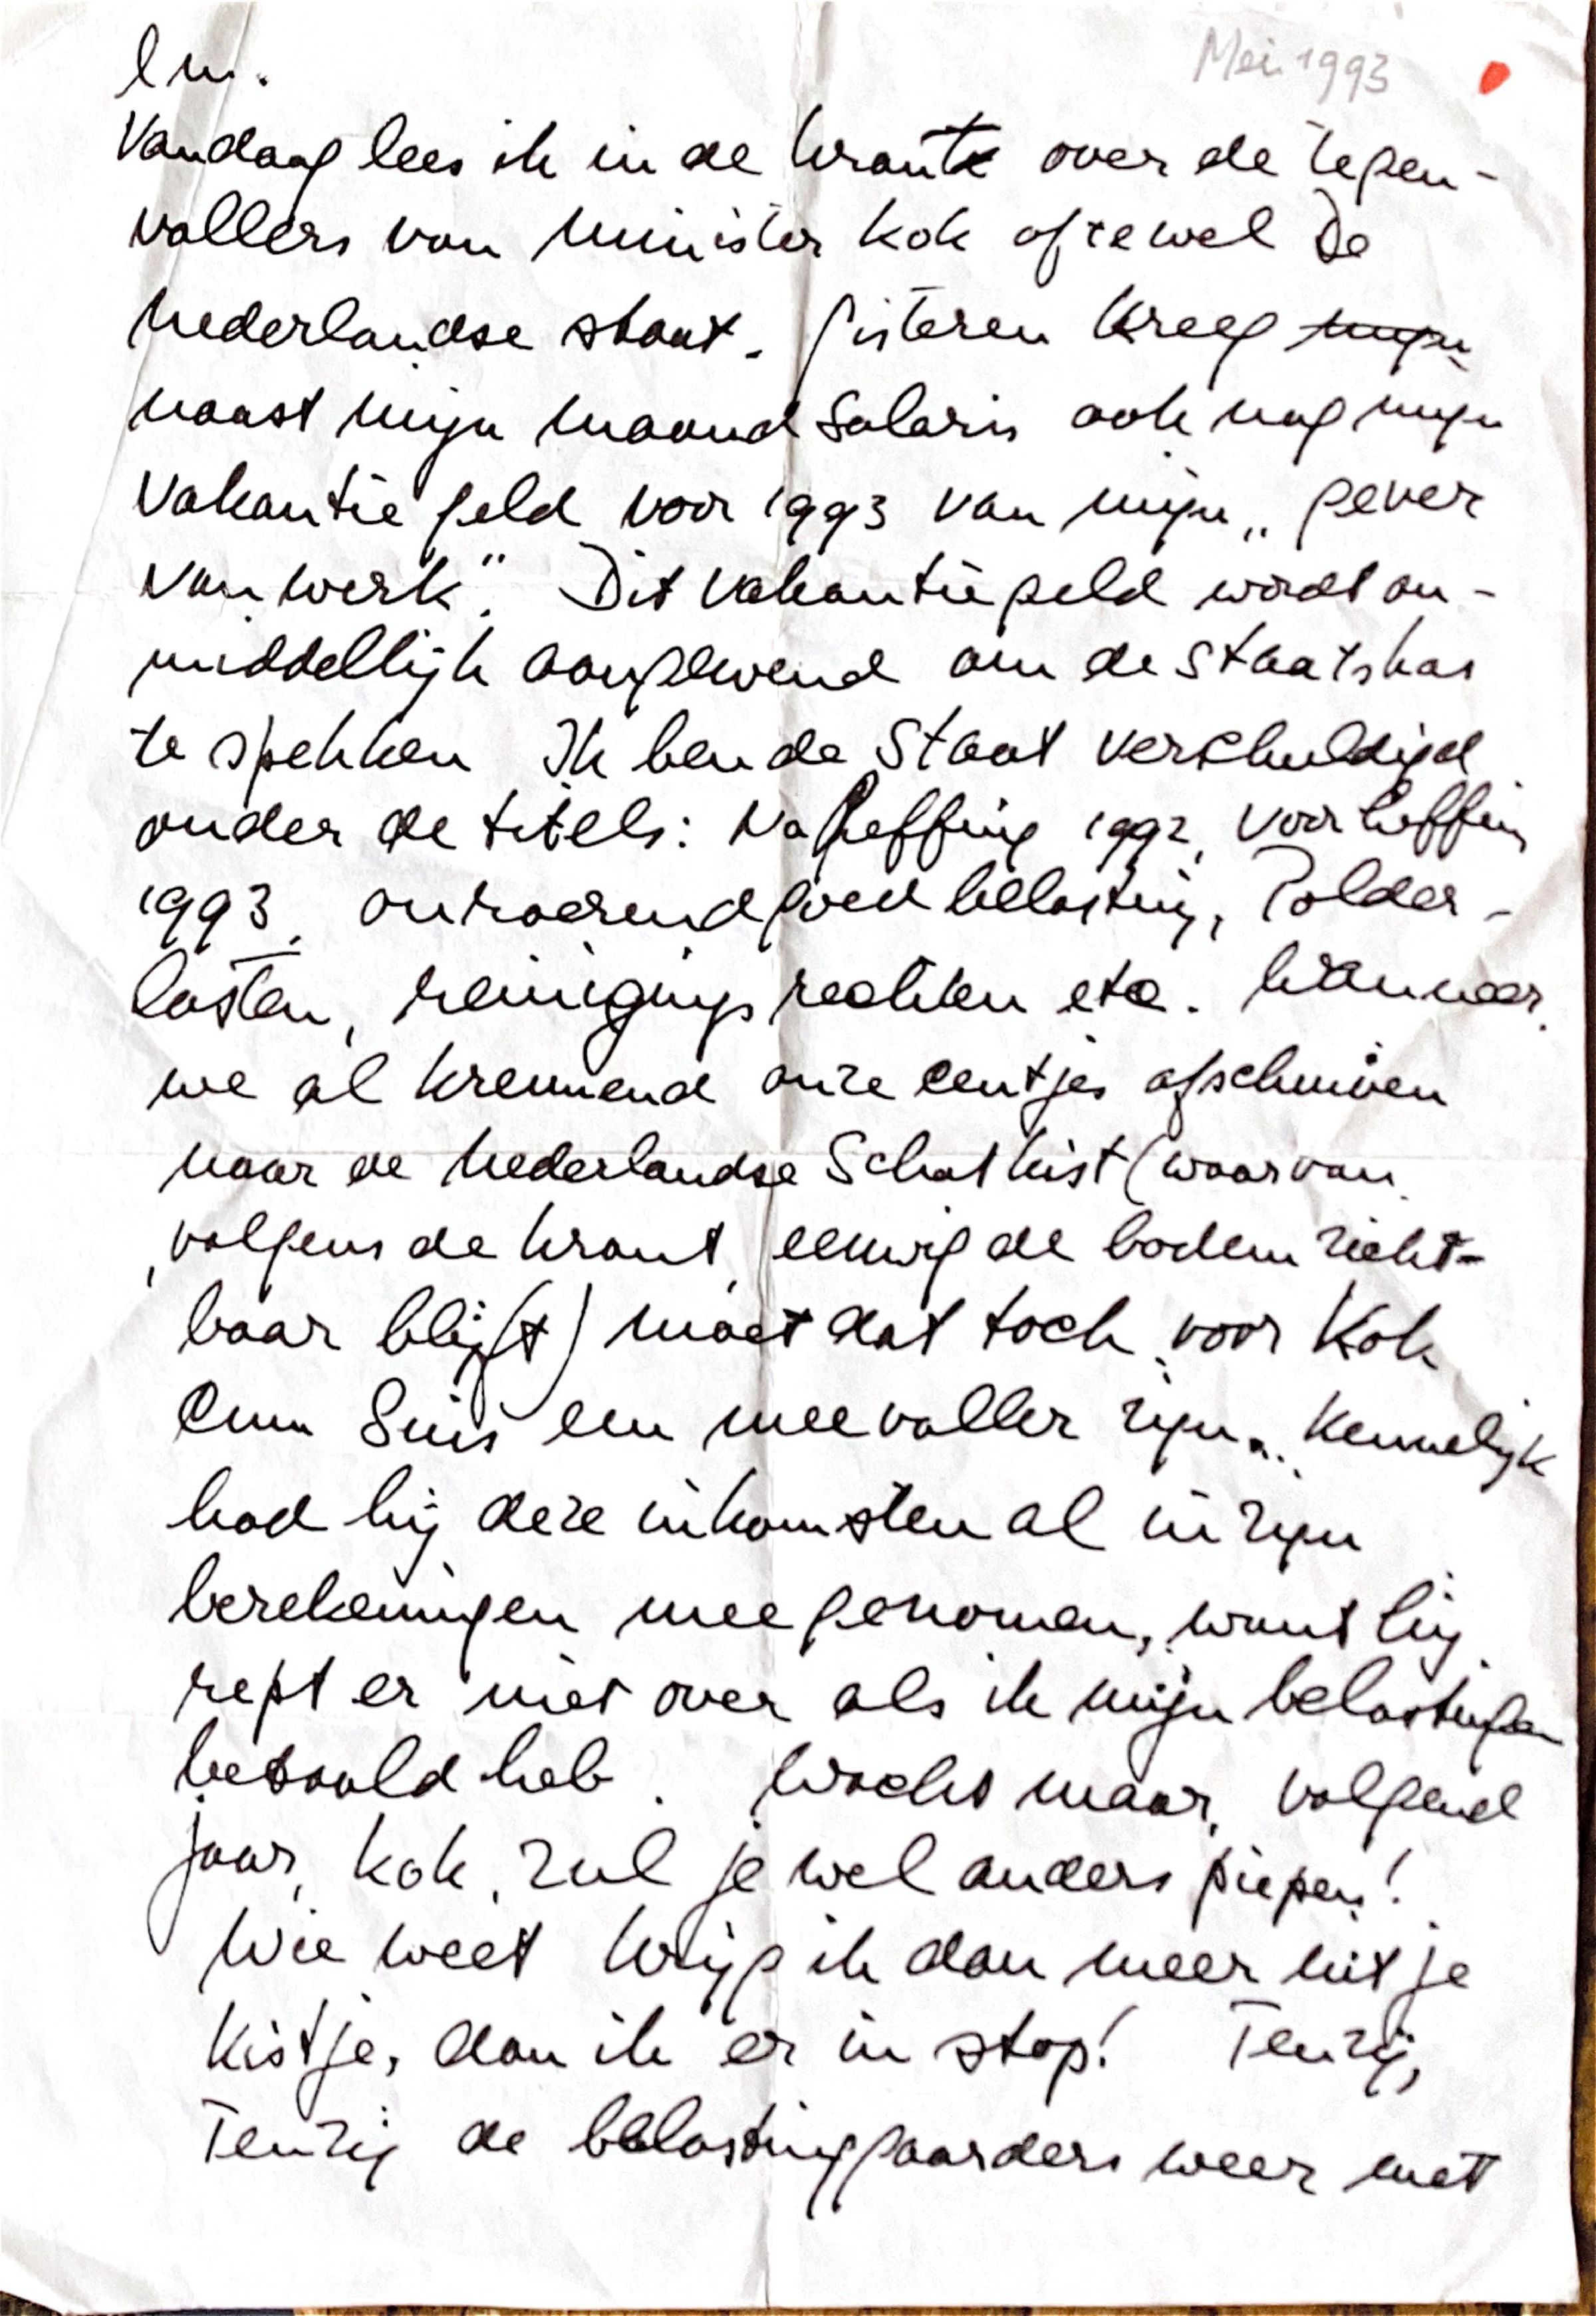 l m.
Mei 1993
Vandaag lees ik in de krant over de tegen-
vallers van minister Kok oftewel De
Nederlandse staat. Gisteren kreeg mijn
naast mijn maand salaris ook nog mijn
vakantie geld voor 1993 van mijn „gever
van werk". Dit vakantiegeld wordt on-
middellijk aangewend om de staatskas
te spekken Ik ben de Staat verschuldigd
onder de titels: Naheffing 1992, Voorheffing
1993, onroerendgoed belasting, Polder-
lasten, reinigings rechten etc. Wanneer
we al kreunend onze centjes afschuiven
naar de Nederlandse Schatkist (waarvan
volgens de krant, eeuwig de bodem zicht-
baar blijft) moet dat toch voor Kok
cum Suis een meevaller zijn... Kennelijk
had hij deze inkomsten al in zijn
berekeningen meegenomen, want hij
rept er niet over als ik mijn belastingen
betaald heb. Wacht maar, volgend
jaar, Kok, zul je wel anders piepen!
Wie weet krijg ik dan meer uit je
kistje, dan ik er in stop! Tenzij,
Tenzij de belastinggaarders weer met